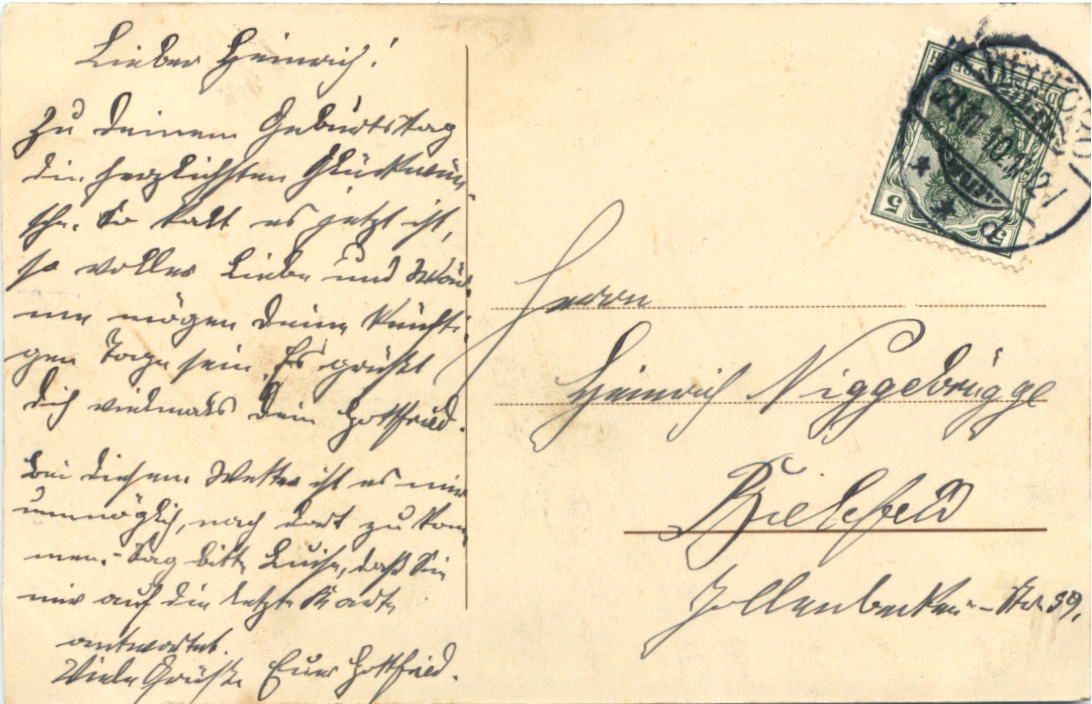 Lieber Heinrich!
Zu deinem Geburtstag
die herzlichsten Glückwün-
sche. So kalt es jetzt ist,
so voller Liebe und Wär-
me mögen deine künfti-
gen Tage sein. Es grüßt
dich vielmals dein Gottfried.
Bei diesem Wetter ist es mir
unmöglich, nach dort zu kom-
men. - Sag bitte Luise, daß sie
mir auf die letzte Karte
antwortet.
Viele Grüße Euer Gottfried.
Herrn
Heinrich Niggebrügge
Bielefeld
Jöllenbecker-Str. 59.
HERFORD
10.11-12
5
5